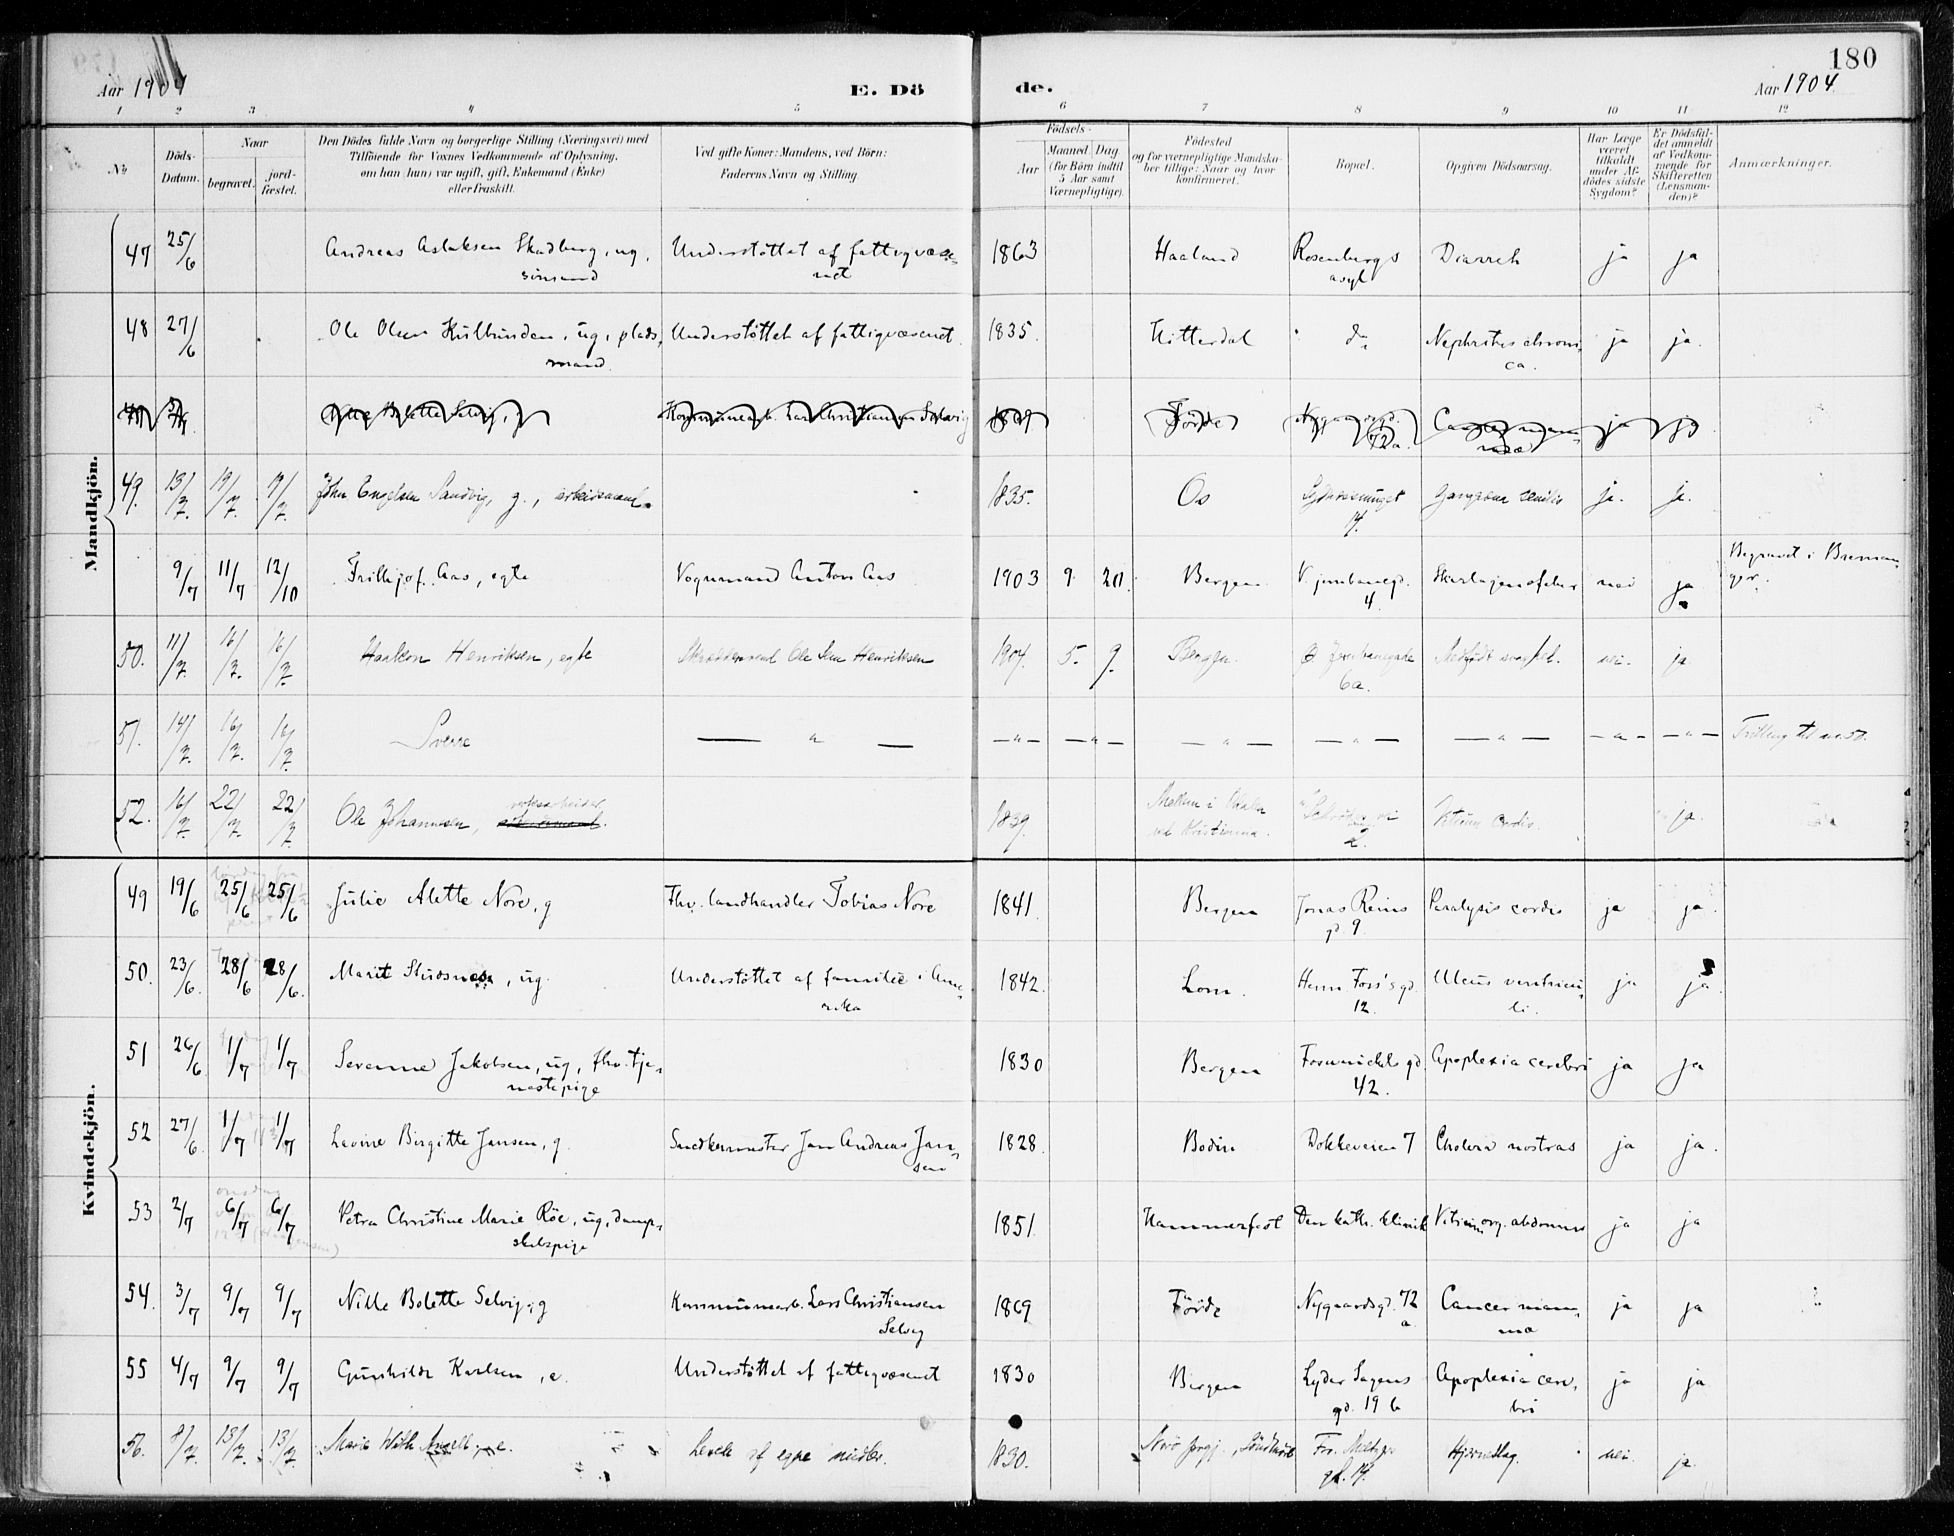 180
Aar 1904
E. Dö
de.
Aar 1904
1 2 3 4 5 6 7 8 9 10 11 12
No
Döds-Datum.
Naar
begravet.
jord-fæstet.
Den Dödes fulde Navn og borgerlige Stilling (Næringsvei) med
Tilföiende for Voxnes Vedkommende af Oplysning,
om han (hun) var ugift, gift, Enkemand (Enke)
eller fraskilt.
Ved gifte Koner: Mandens, ved Börn:
Faderens Navn og Stilling.
Födsels-
Aar
Maaned. Dag.
(for Börn indtil
5 Aar samt
Værnepligtige).
Födested
og for værnepligtige Mandska-
ber tillige: Naar og hvor
konfirmeret.
Bopæl.
Opgiven Dödsaarsag.
Har Læge
været
tilkaldt
under Af-
dödes sidste
Sygdom?
Er Dödsfal-
det anmeldt
af Vedkom-
mende for
Skifteretten
(Lensman-
den)?
Anmærkninger.
Mandkjön.
47 25/6 Andreas Aslaksen Skadberg, ug, sömand Understöttet af fattigvæse-net 1863 Haaland Rosenbergs asyl Diarreh ja ja
48 27/6 Ole Olsen Hulbunden, ug, plads-mand. Understöttet af fattigvæsenet. 1835. Hitterdal do Nephritis chroni-ca. ja ja.
49. 13/7. 19/7. 19/7. John Engelsen Sandvig, g., arbeidsmand. 1835. Os 14. Gangræna senilis ja. ja.
9/7 11/7 12/10 Frithjof Aas, egte Vognmand Anton Aas 1903 9 20. Bergen V. jernbanegd. 4. Skarlagensfeber nei ja Begravet i Breman-ger.
50. 11/7. 16/7. 16/7. Haakon Henriksen, egte Ole Henriksen 1904. 5. 9. Bergen. Ø. Jernbanegade 6a. Medfödt svaghed. nei. ja
51. 14/7. 16/7. 16/7. Sverre — " — — " — — " — — " — — " — — " — — " — — " — Tvilling til no 50.
52. 16/7. 22/7. 22/7 Ole Johannesen, verksarbeider. 1839. Vitium Cordis. ja.
Kvindekjön.
49 19/6 25/6 25/6 Julie Alette Nore, g Fhv. landhandler Tobias Nore 1841. Bergen Jonas Reins gd. 9. Paralysis cordis ja ja.
50. 23/6. 28/6 28/6. Marit Skudsnes, ug. Understöttet af familie i Ame-rika 1842. Lom. Henr. Foss's gd. 12. Ulcus ventricu-li. ja ja.
51 26/6 1/7 1/7 Severine Jakobsen, ug, fhv. tje-nestepige 1830 Bergen 42. Apoplexia cerebri ja ja
52 27/6. 1/7 1/7 Lavine Birgitte Jansen, g. Snedkermester Jan Andreas Jan-sen 1828. Bodin Dokkeveien 7 Cholera nostras ja ja.
53 2/7 6/7 6/7 Petra Christine Marie Röe, ug, damp-skibspige 1851. Hammerfest Den kath. klinik Vitium org. abdominis ja ja
54. 3/7 9/7 9/7 Nille Bolette Selvig, g Kommunearb. Lars Christiansen Selvig 1869 Förde Nygaardsgd. 72 a. Cancer mam-mæ ja ja
55 4/7 9/7 9/7 Gunhilde Karlsen, e. Understöttet af fattigvæsenet 1830 Bergen Lyder Sagens gd. 19 b Apoplexia cere-bri ja ja
56. 8/7. 13/7. 13/7. Marie With Angell, e. Levede af egne midler. 1830. Fos. Meltzers gd. 14. Hjerneslag. nei. ja.